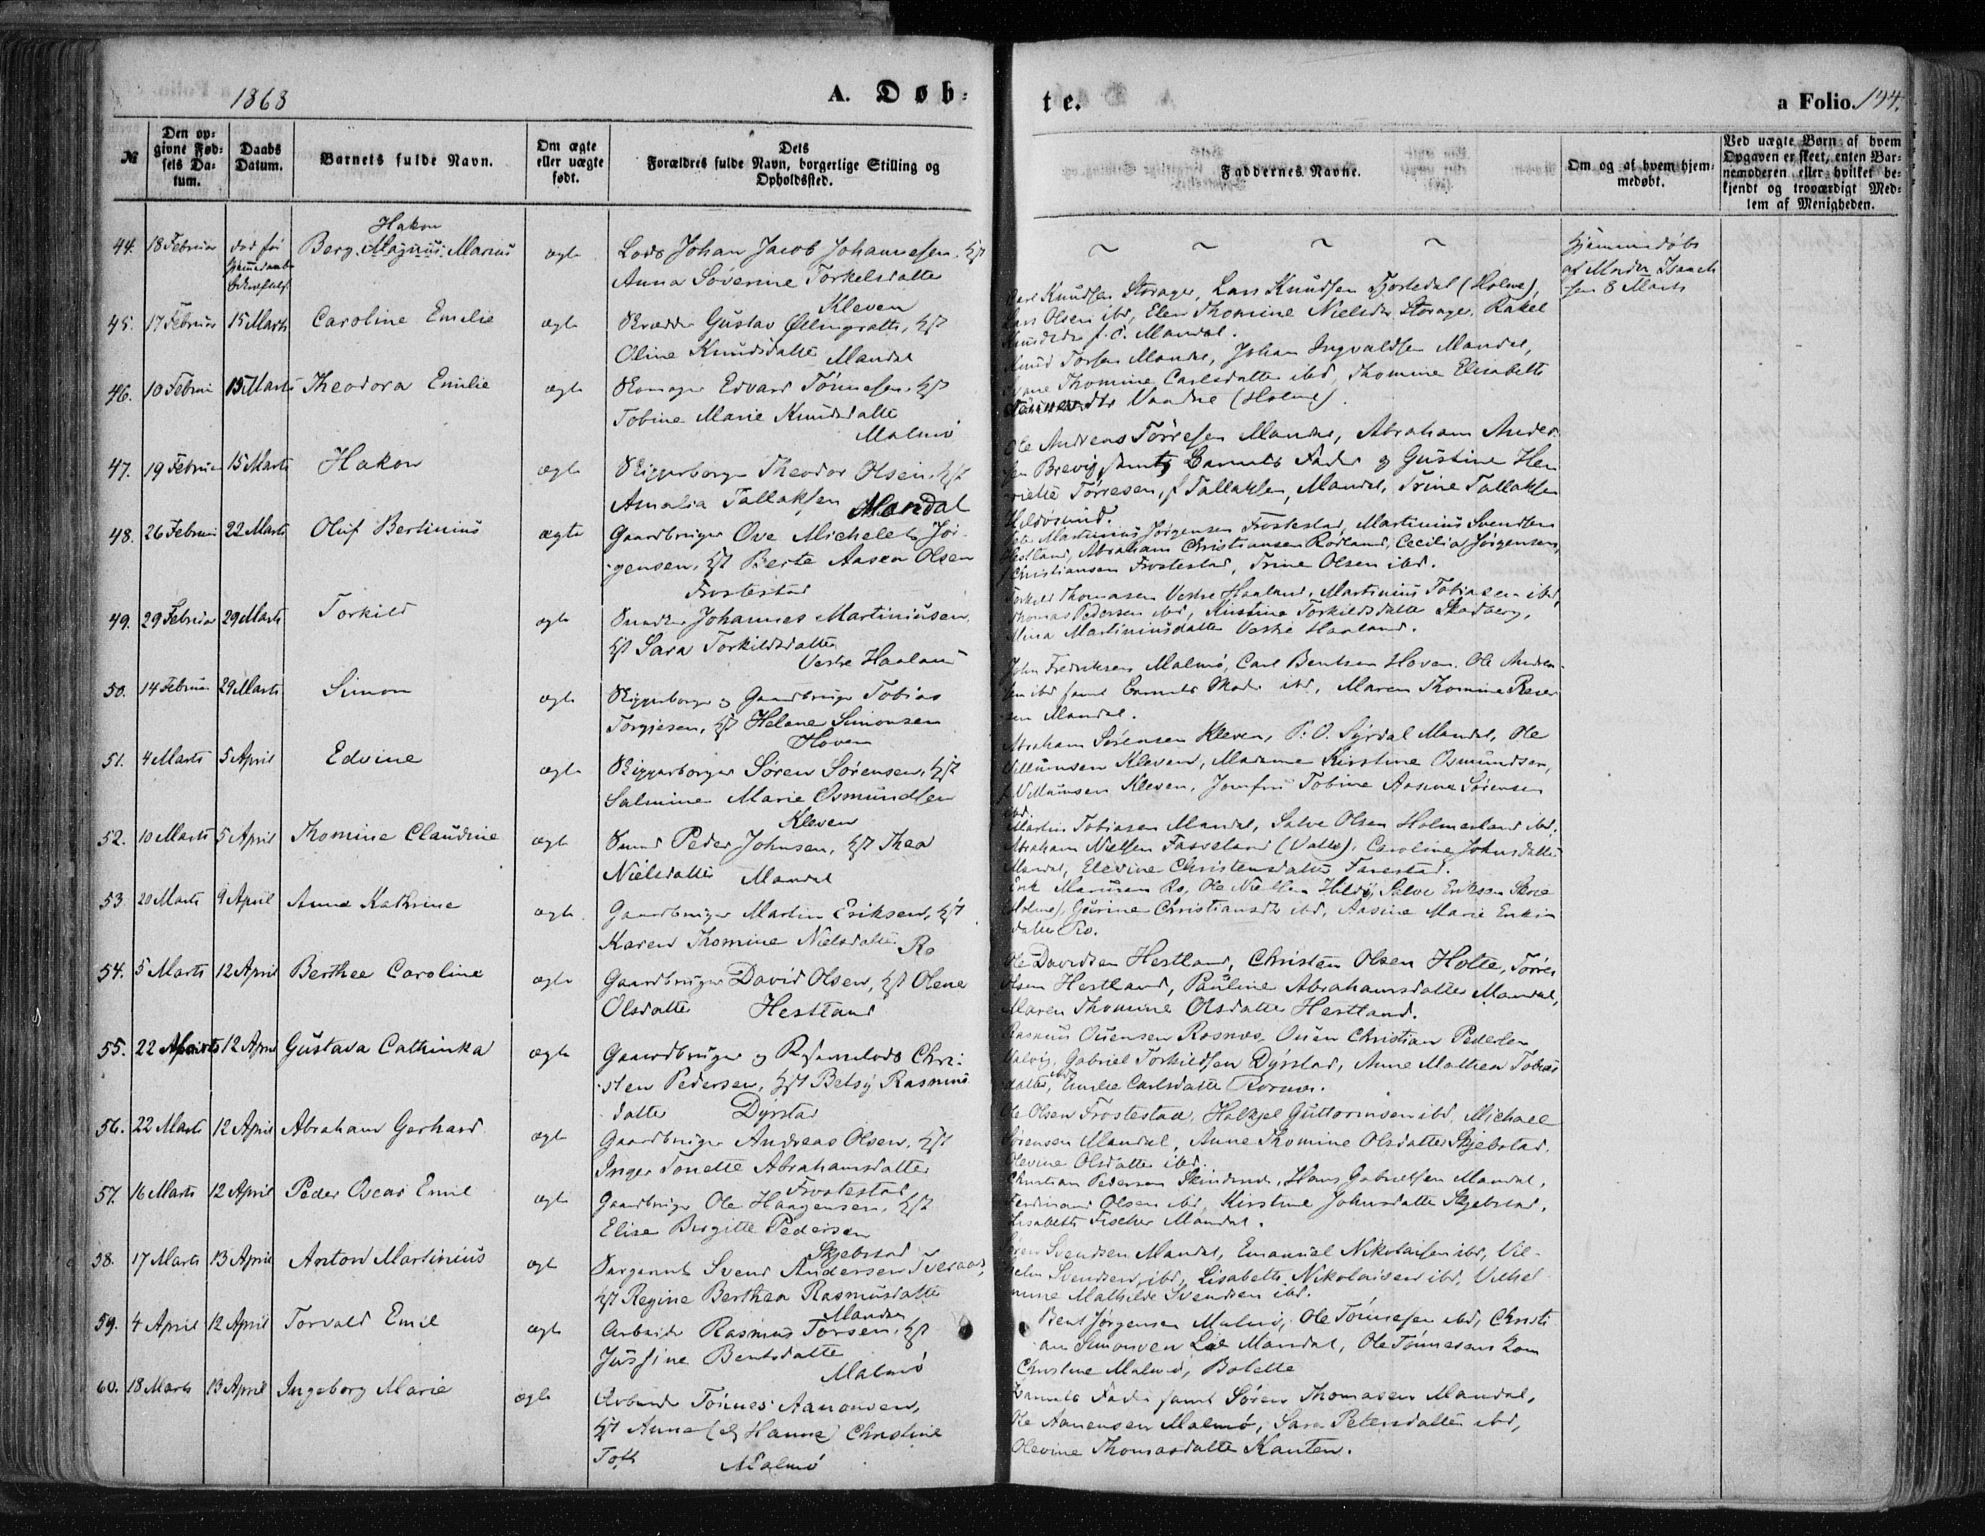 1868
A. Døb-
te.
a Folio 144.
№
Den opgivne Fødsels Datum.
Daabs Datum.
Barnets fulde Navn.
Om ægte eller uægte født.
Dets Forældres fulde Navn, borgerlige Stilling og Opholdssted.
Faddernes Navne.
Om og af hvem hjemmedøbt.
Ved uægte Børn af hvem Opgaven er skeet, enten Barnemoderen eller hvilket bekjendt og troværdigt Medlem af Menigheden.
44. 18 Februar
Hakon
Berg Magnus Marius
ægte
Lods Johan Jacob Johannesen, Hst
Anna Söverine Torkelsdatter
Kleven
Hjemmedøbt
af Isach
sen 8 Marts
45. 17 Februar 15 Marts Caroline Emilie ægte
Skrædder Gustav
Oline Knudsdatte Mandal
Knudsen Storager, Lars Knudsen (Holme),
Olsen ibd, Elen Thomine Nielsdtr Storager, Rakel
Mandal.
46. 10 Februar 15 Marts Theodora Emilie ægte
Skomager Edvard Tönnesen, Hst
Tobine Marie Knudsdatte
Malmö
Torsen Mandal, Johan Ingvaldsen Mandal,
Thomine Carlsdatter ibd, Thomine Elisabeth
(Holme).
47. 19 Februar 15 Marts Hakon ægte
Skipperborger Theodor Olsen, Hst
Amalia Tallaksen Mandal
Ole Andreas Törresen Mandal, Abraham Ander
sen Brevig samt Barnets Fader og Gustine Hen
Törresen, f Tallaksen, Mandal, Trine Tallaksen
48. 26 Februar 22 Marts Oluf Bertinius ægte
Gaardbruger Ove Michelet Jör-
gensen, Hst Berte Aasen Olsen
Frostestad
Martinius Jørgensen Frostestad, Martinius Svendsen
Hestland, Abraham Christiansen Rödland, Cecilia Jörgensen,
Christiansen Frostestad, Trine Olsen ibd.
49. 29 Februar 29 Marts Torkild ægte
Snedker Johannes Martiniusen,
Hst Sara Torkildsdatter
Vestre Haaland
Torkild Thomasen Vestre Haaland, Martinius Tobiasen ibd,
Thomas Pedersen ibd, Kirstine Torkildsdatter Skadberg,
Martiniusdatter Vestre Haaland.
50. 14 Februar 29 Marts Simon ægte
Skipperborger og Gaardbruger Tobias
Torgjesen, Hst Helene Simonsen
Hoven
John Fredriksen Malmö, Carl Bentsen Hoven, Ole Andrea-
sen ibd samt Barnets Moder ibd, Maren Thomine
Mandal.
51. 4 Marts 5 April Edvine ægte
Skipperborger Sören Sörensen, Hst
Salmine Marie Osmundsen
Kleven
Abraham Sörensen Kleven, P. O. Syrdal Mandal, Ole
Villumsen Kleven, Madame Kirstine Osmundsen,
f Villumsen Kleven, Jomfru Tobine Aasine Sörensen
ibd.
52. 10 Marts 5 April Thomine Claudine ægte
Smed Peder Johnsen, Hst Thea
Nielsdatter Mandal
Martin Tobiasen Mandal, Salve Olsen Holmesland ibd,
Abraham Nielsen Fasseland (Valle), Caroline Johnsdatter
Mandal, Elevine Christensdatter Farestad.
53. 20 Marts 9 April Anne Kathrine ægte
Gaardbruger Martin Eriksen, Hst
Karen Thomine Nielsdatter Ro
Erik Ro, Ole Nielsen Hildö, Salve Eriksen
Holme, Gurine Christiansdtr ibd, Aasine Marie Eriks
datter Ro.
54. 5 Marts 12 April Berthee Caroline ægte
Gaardbruger David Olsen, Hst Olene
Olsdatte Hestland
Ole Davidsen Hestland, Christen Olsen Holte, Törres
Olsen Hestland, Pauline Abrahamsdatter Mandal,
Maren Thomine Olsdatter Hestland.
55. 22 Marts 12 April Gustava Cathinka ægte
Gaardbruger og Chri-
sten Pedersen, Hst Betsy Rasmus
datter Dyrstad
Rasmus Ousensen Rosnes, Ousen Christian Pedersen
Gabriel Torkildsen Dyrstad, Anne Mathea Tobias
datter ibd, Emilie Carlsdatte
56. 22 Marts 12 April Abraham Gerhard ægte
Gaardbruger Andreas Olsen, Hst
Inger Tonette Abrahamsdatter
Frostestad
Ole Olsen Frostestad, Holkjel Guttormsen ibd, Michael
Sörensen Mandal, Anne Thomine Olsdatter Skjebstad,
Olevine Olsdatter ibd.
57. 16 Marts 12 April Peder Oscar Emil ægte
Gaardbruger Ole Haagensen, Hst
Elise Birgitte Pedersen
Skjebstad
Christian Pedersen Skinsnes, Hans Gabrielsen Mandal,
Ferdinand Olsen ibd, Kirstine Johnsdatter Skjebstad,
Lisabeth Fischer Mandal.
58. 17 Marts 13 April Anton Martinius ægt
Sergeant Svend Andersen Tveraas,
Hst Regine Berthea Rasmusdatte
Mandal
Sören Svendsen Mandal, Emanuel Nikolaisen ibd, Vil-
helm Svendsen ibd, Lisabeth Nikolaisen ibd, Vilhel
mine Mathilde Svendsen ibd.
59. 4 April 12 April Torvald Emil ægte
Arbeider Rasmus Torsen, Hst
Jussine Bentsdatte
Malmö
Bent Jörgensen Malmö, Ole Tönnesen ibd, Christi
an Simonsen Lie Mandal, Ole Tönnesens Kone
Christine Malmö, Bolette
60. 18 Marts 13 April Ingeborg Marie ægte
Arbeider Tönnes Aanonsen,
Hst Anne (ell Hanne) Christine
Toft Malmö
Barnets Fader samt Sören Thomasen Mandal,
Ole Aanensen Malmö, Sara Petersdatter ibd,
Olevine Thomasdatte Kanten.